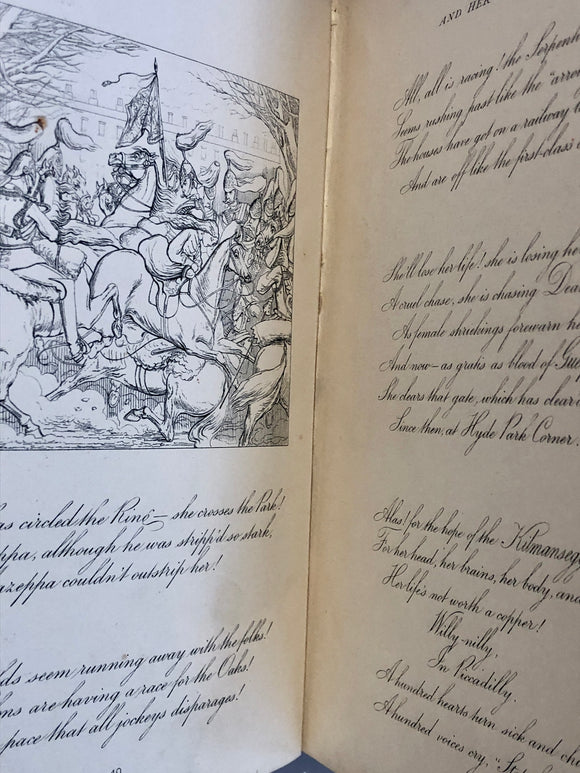 as circled the Ring — she crosses the Park!
ppa, although he was stripp'd so stark,
azeppa couldn't outstrip her!
lds seem running away with the folks!
ns are having a race for the Oaks!
pace that all jockeys disparages!
AND HER
All, all is racing! the Serpent
Seems rushing past like the "arro
The houses have got on a railway
And are off like the first-class
She'll lose her life! she is losing he
A cruel chase, she is chasing Dea
As female shriekings forewarn he
And now — as gratis as blood of Gue
She clears that gate, which has clear
Since then, at Hyde Park Corner!
Alas! for the hope of the Kilmanseg
For her head, her brains, her body, and
Her life's not worth a copper!
Willy-nilly,
In Piccadilly.
A hundred hearts turn sick and ch
A hundred voices cry, "St